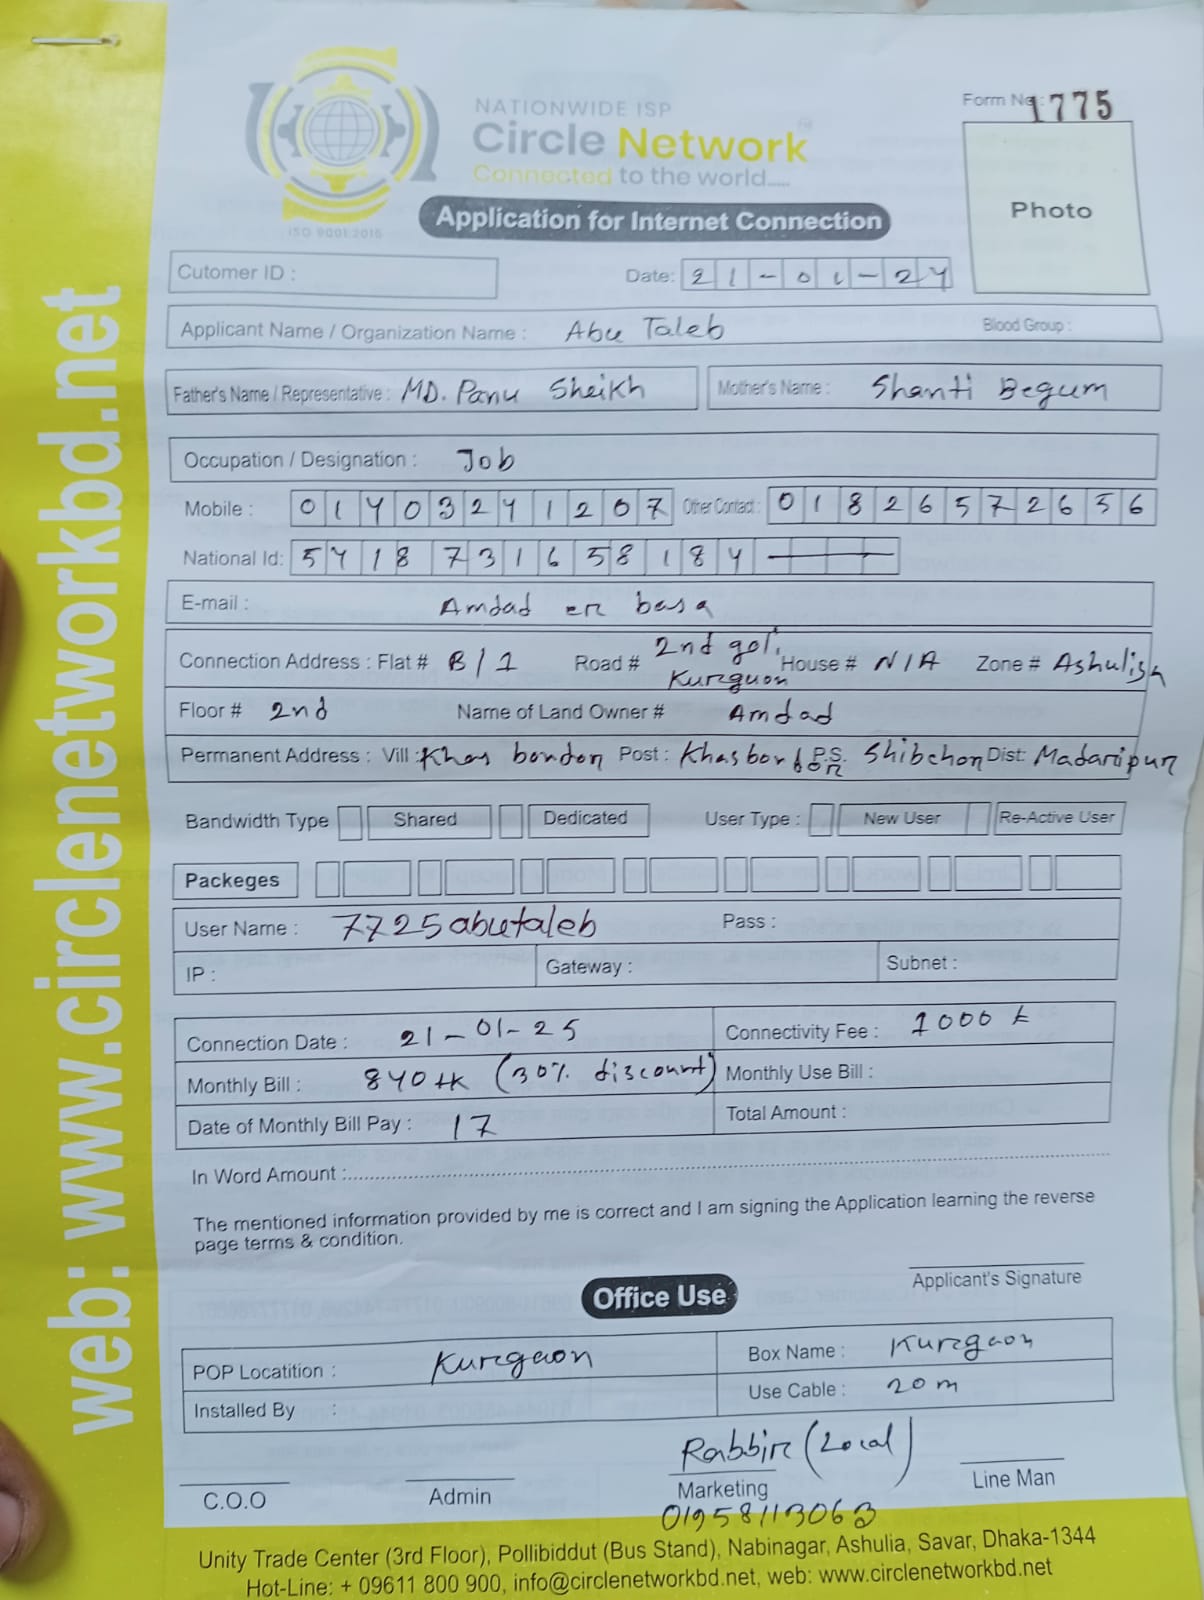 web: www.circlenetworkbd.net
NATIONWIDE ISP
Circle Network
Connected to the world.....
ISO 9001:2015
Form No : 1775
Photo
Application for Internet Connection
Cutomer ID :
Date: 21-01-24
Applicant Name / Organization Name : Abu Taleb Blood Group :
Father's Name / Representative : MD. Panu Sheikh Mother's Name : Shanti Begum
Occupation / Designation : Job
Mobile : 01403241207 Other Contact : 01826572656
National Id: 5418731658184
E-mail : Amdad er basa
Connection Address : Flat # B/1 Road # 2nd goli Kurgaon House # N/A Zone # Ashulia
Floor # 2nd Name of Land Owner # Amdad
Permanent Address : Vill : Khas bondon Post : Khasbondon P.S. Shibchon Dist: Madaripur
Bandwidth Type Shared Dedicated User Type : New User Re-Active User
Packeges
User Name : 7725abutaleb Pass :
IP : Gateway : Subnet :
Connection Date : 21-01-25 Connectivity Fee : 1000 t
Monthly Bill : 840tk (30% discount) Monthly Use Bill :
Date of Monthly Bill Pay : 17 Total Amount :
In Word Amount :
The mentioned information provided by me is correct and I am signing the Application learning the reverse
page terms & condition.
Applicant's Signature
Office Use
POP Locatition : Kurgaon Box Name : Kurgaon
Installed By : Use Cable : 20m
Rabbir (Local)
C.O.O Admin Marketing Line Man
01958113063
Unity Trade Center (3rd Floor), Pollibiddut (Bus Stand), Nabinagar, Ashulia, Savar, Dhaka-1344
Hot-Line: + 09611 800 900, info@circlenetworkbd.net, web: www.circlenetworkbd.net